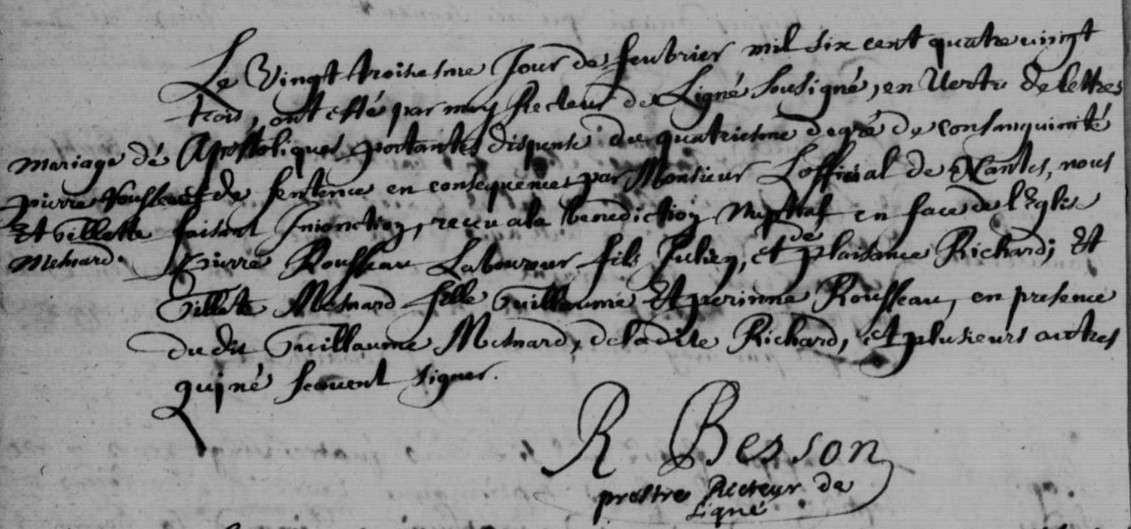 Le Vingt troisiesme Jour de feubrier mil six cent quatre vingt
trois, ont esté par moy Recteur de Ligné soussigné, en Vertu de lettres
Apostoliques portantes dispense du quatriesme degré de consanguinité
et de sentence en consequence par Monsieur L'official de Nantes, nous
faisant Injonction, receu a la benediction Nuptial en face de l'Eglise
Pierre Rousseau Laboureur fils Julien, et de plaisance Richard; Et
Gillete Mesnard fille Guillaume Et perinne Rousseau, en presence
du dit Guillaume Mesnard, de la dite Richard, et plusieurs autres
qui né scavent signer.
mariage dé
pierre Rousseau
Et Gillette
Mesnard.
R Besson
prestre Recteur de
Ligné